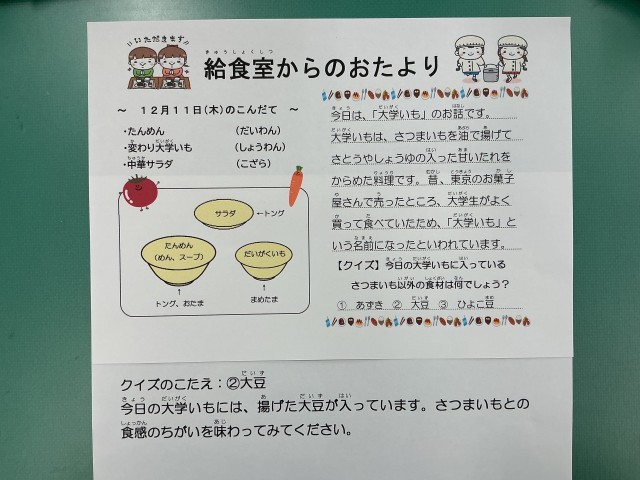 いただきます!!
給食室からのおたより
～ 12月11日(木)のこんだて ～
・たんめん (だいわん)
・変わり大学いも (しょうわん)
・中華サラダ (こざら)
サラダ ←トング
たんめん
(めん、スープ)
だいがくいも
↑
トング、おたま
↑
まめたま
今日は、「大学いも」のお話です。
大学いもは、さつまいもを油で揚げて
さとうやしょうゆの入った甘いたれを
からめた料理です。昔、東京のお菓子
屋さんで売ったところ、大学生がよく
買って食べていたため、「大学いも」と
いう名前になったといわれています。
【クイズ】今日の大学いもに入っている
さつまいも以外の食材は何でしょう？
① あずき ② 大豆 ③ ひよこ豆
クイズのこたえ：②大豆
今日の大学いもには、揚げた大豆が入っています。さつまいもとの
食感のちがいを味わってみてください。